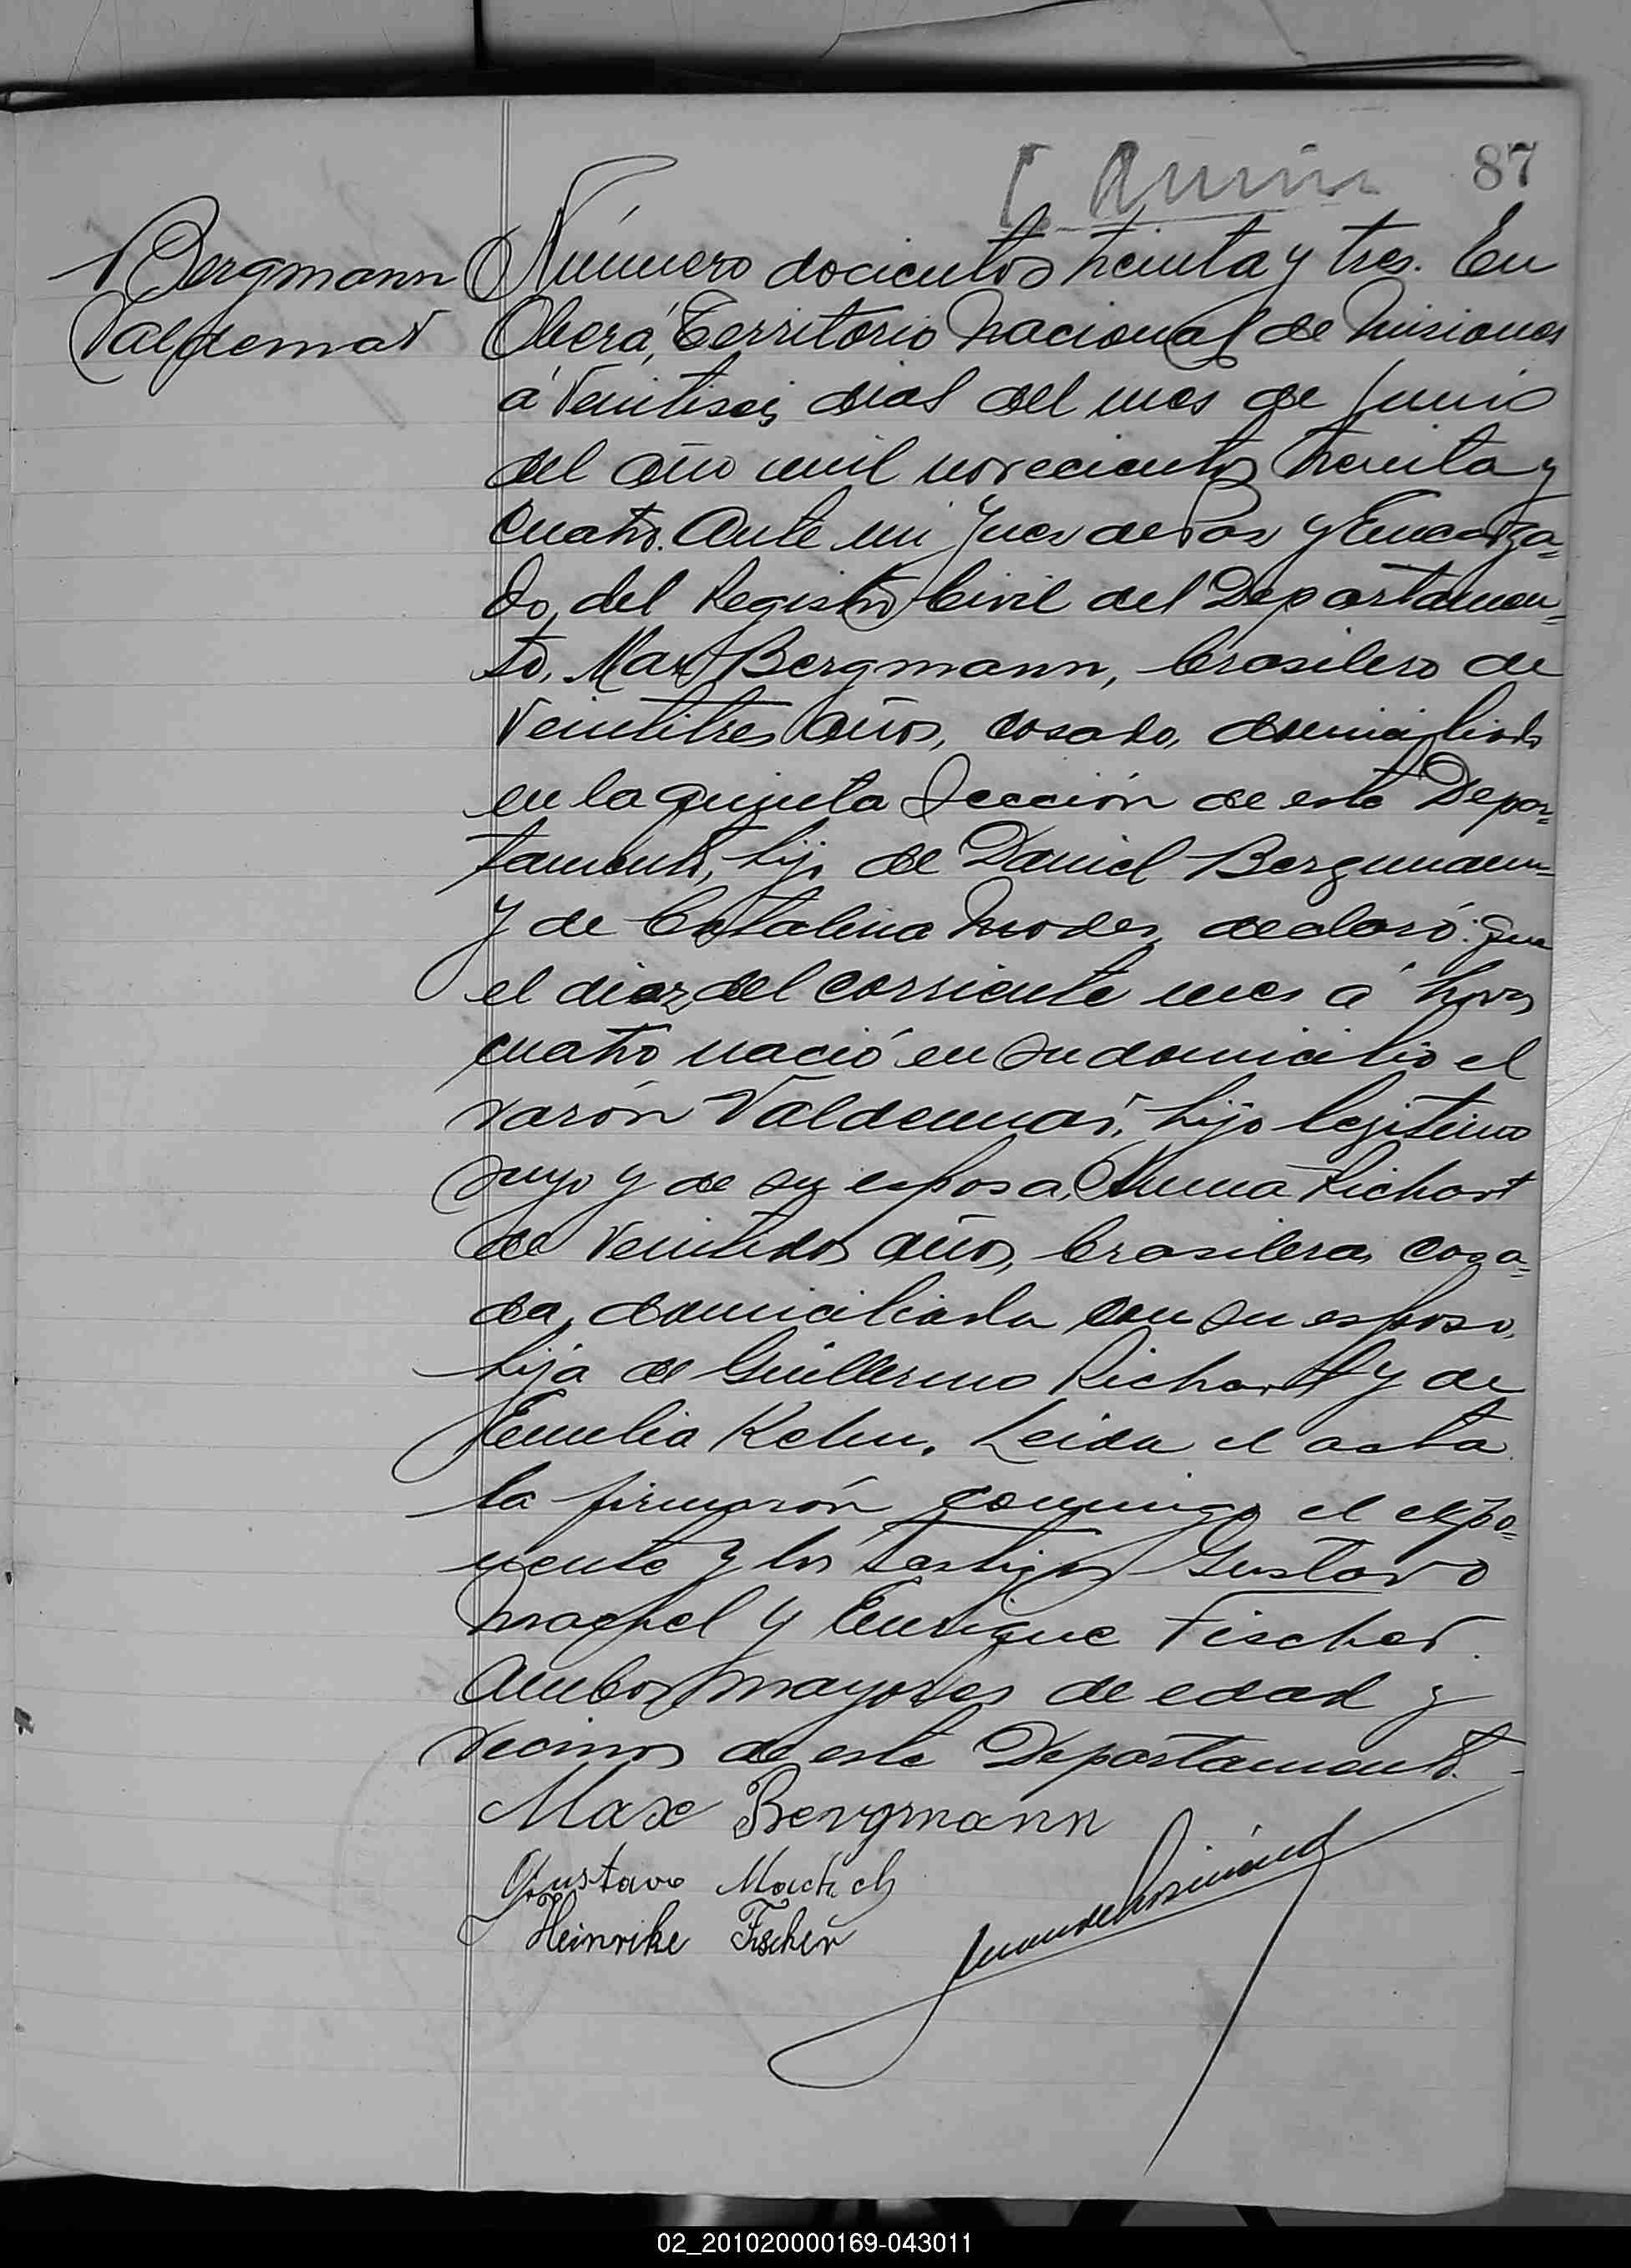 87
Bergmann
Valdemar
Número docientos treinta y tres. En
Oberá, Territorio Nacional de Misiones
á veintiseis dias del mes de Junio
del año mil novecientos treinta y
cuatro. Ante mi Juez de Paz y Encarga=
do, del Registro Civil del Departamen=
to, Max Bergmann, brasilero de
veintitres años, casado, domiciliado
en la quinta Sección de este Depar=
tamento, hijo de Daniel Bergmann=
y de Catalina declaró: que
el diez del corriente mes á horas
cuatro nació en su domicilio el
varón Valdemar, hijo legitimo
suyo y de su esposa Richart
de veintidos años, brasilera, casa=
da, domiciliada con su esposo,
hija de Guillermo Richart y de
Emilia Kehn. Leida el acta
la firmarón conmigo el expo=
nente y los testigos Gustavo
y Enrique Fischer.
Ambos mayores de edad y
vecinos de este Departamento.
Max Bergmann
Gustavo
Heinrike Fischer
02_201020000169-043011